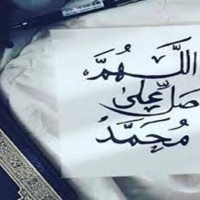 اللَّهُمَّ
صَلِّ عَلَىٰ
مُحَمَّد